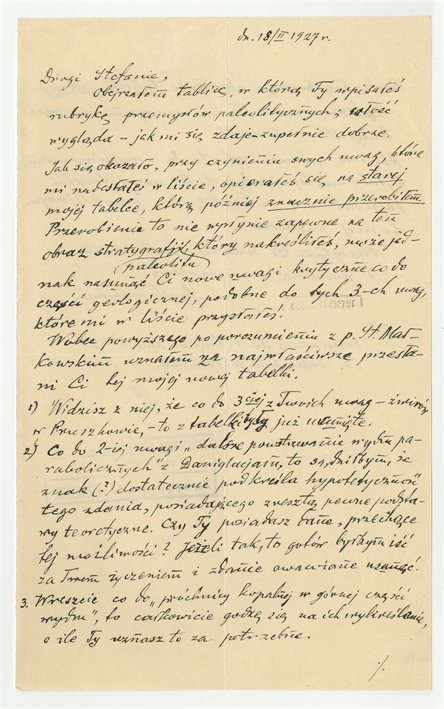 dn. 18/II 1927 r.
Drogi Stefanie,
obejrzałem tablicę, w którą Ty wpisałeś
rubrykę przemysłów paleolitycznych; całość
wygląda – jak mi się zdaje – zupełnie dobrze.
Jak się okazało, przy czynieniu swych uwag, które
mi nadesłałeś w liście, opierałeś się na starej
mojej tabelce, którą później znacznie przerobiłem.
Przerobienie to nie wpłynie zapewne na ten
obraz stratygrafji, który nakreśliłeś, może jed-
paleolitu
nak nasunąć Ci nowe uwagi krytyczne co do
części geologicznej, podobne do tych 3-ch uwag,
które mi w liście przysłałeś.
Wobec powyższego po porozumieniu z p. St. Mał-
kowskim uznałem za najwłaściwsze przesła-
ni Ci tej mojej nowej tabelki.
1) Widzisz z niej, że co do 3-ciej z Twoich uwag – żwirów
w Pruszkowie, – to z tabelki są już usunięte.
2) Co do 2-iej uwagi "dalsze powstawanie wydm pa-
rabolicznych" z Daniglacjału, to sądziłbym, że
znak (?) dostatecznie podkreśla hypotetyczność
tego zdania, posiadającego zresztą pewne podsta-
wy teoretyczne. Czy Ty posiadasz dane, przeczące
tej możliwości? Jeżeli tak, to gotów byłbym iść
za Twem życzeniem i zdanie omawiane usunąć.
3. Wreszcie co do "próchnicy kopalnej w górnej części
wydm", to całkowicie godzę się na ich wykreślenie,
o ile Ty uznasz to za potrzebne.
./.